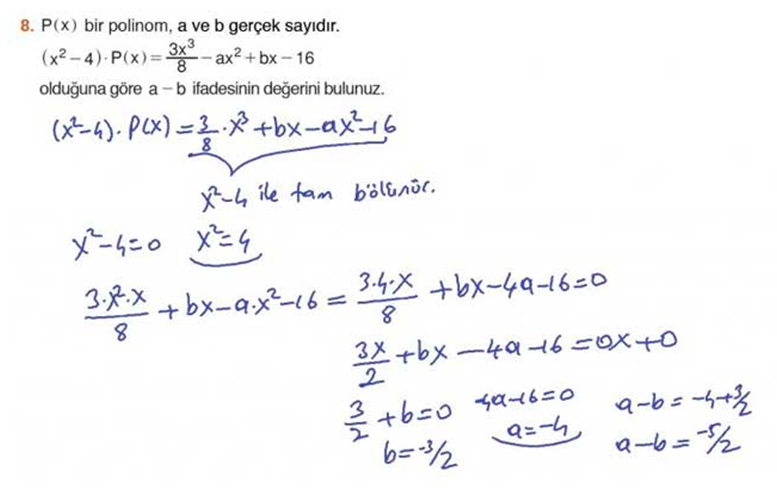 8. P(x) bir polinom, a ve b gerçek sayıdır.
(x² – 4) · P(x) = 3x³/8 – ax² + bx – 16
olduğuna göre a – b ifadesinin değerini bulunuz.
(x²-4). P(x) = 3/8 . x³ + bx - ax² - 16
x²-4 ile tam bölünür.
x²-4=0 x²=4
3.x².x/8 + bx - a.x² - 16 = 3.4.x/8 + bx - 4a - 16 = 0
3x/2 + bx - 4a - 16 = 0x + 0
3/2 + b = 0 -4a-16=0 a-b = -4+3/2
b = -3/2 a=-4 a-b = -5/2